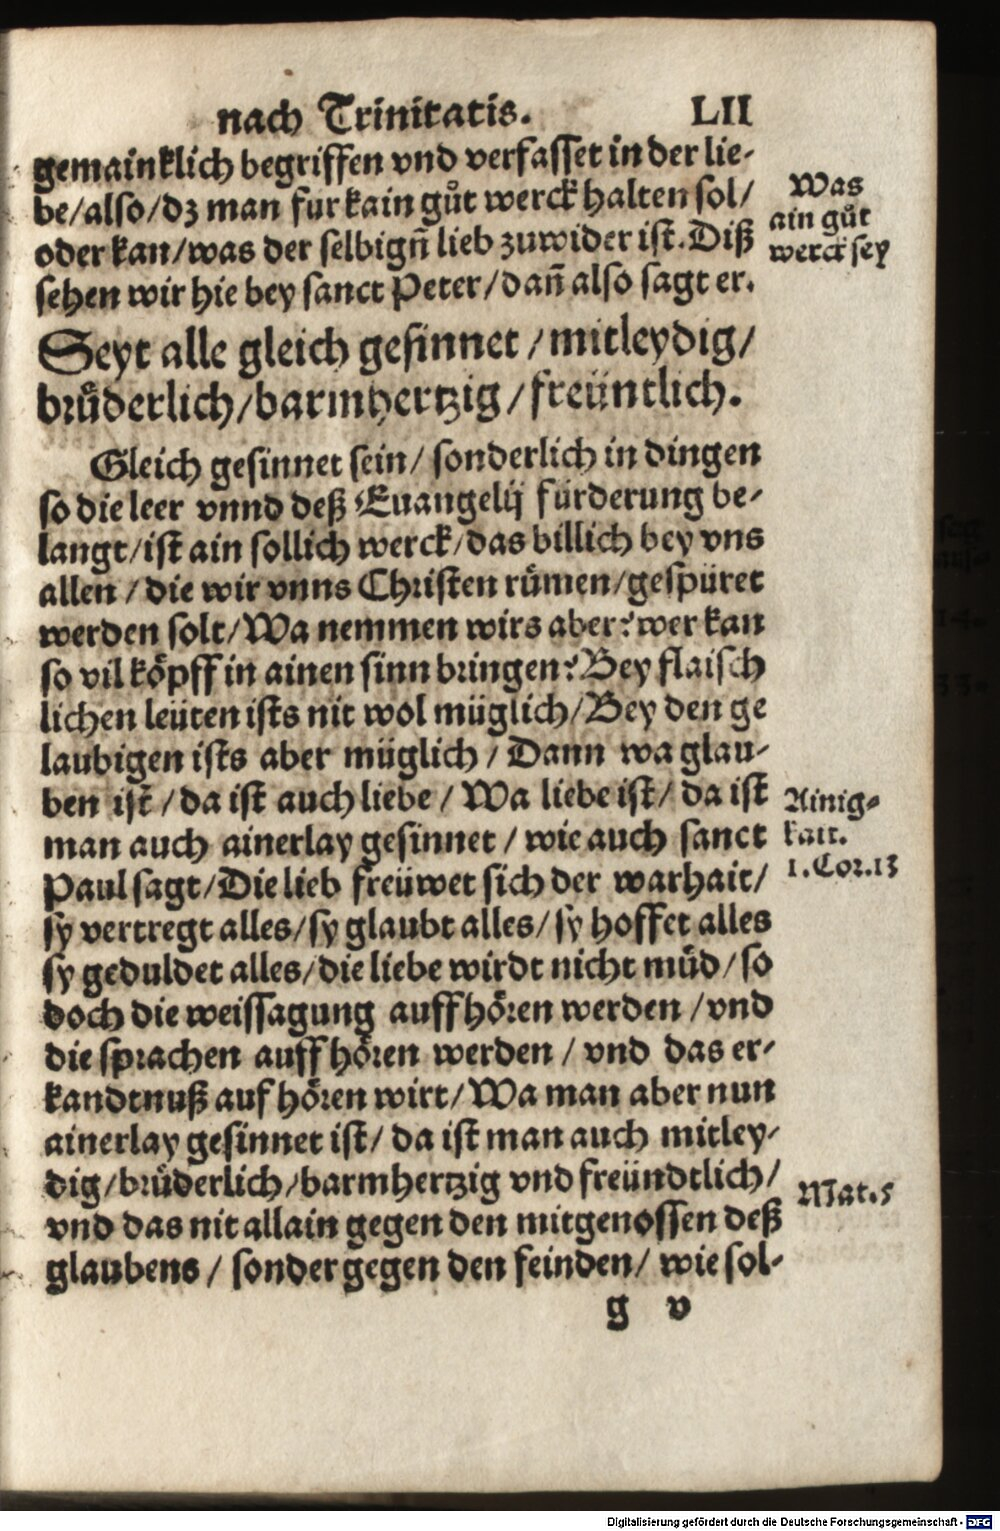 nach Trinitatis. LII
gemainklich begriffen vnd verfasset in der lie-
be/also/dz man fur kain gůt werck halten sol/
oder kan/was der selbigñ lieb zuwider ist. Diß
sehen wir hie bey sanct Peter/dañ also sagt er.
Was
ain gůt
werck sey
Seyt alle gleich gesinnet/mitleydig/
brůderlich/barmhertzig/freüntlich.
Gleich gesinnet sein/sonderlich in dingen
so die leer vnnd deß Euangelij fürderung be-
langt/ist ain sollich werck/das billich bey vns
allen/die wir vnns Christen růmen/gespüret
werden solt/Wa nemmen wirs aber? wer kan
so vil köpff in ainen sinn bringen? Bey flaisch
lichen leüten ists nit wol müglich/Bey den ge
laubigen ists aber müglich/Dann wa glau-
ben ist/da ist auch liebe/Wa liebe ist/da ist
man auch ainerlay gesinnet/wie auch sanct
Paul sagt/Die lieb freüwet sich der warhait/
sy vertregt alles/sy glaubt alles/sy hoffet alles
sy geduldet alles/die liebe wirdt nicht müd/so
doch die weissagung auffhören werden/vnd
die sprachen auffhören werden/vnd das er-
kandtnuß aufhören wirt/Wa man aber nun
ainerlay gesinnet ist/da ist man auch mitley-
dig/brůderlich/barmhertzig vnd freündtlich/
vnd das nit allain gegen den mitgenossen deß
glaubens/sonder gegen den feinden/wie sol-
Ainig-
kait.
1.Cor.13
Mat.5
g v
Digitalisierung gefördert durch die Deutsche Forschungsgemeinschaft - DFG